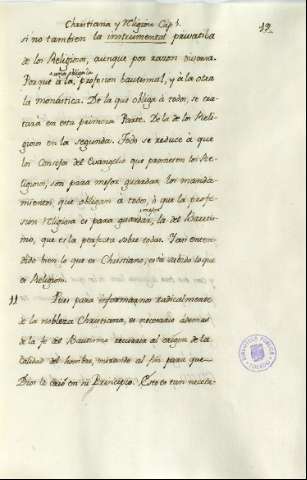 Christiana y Religiosa Cap. 1.
si no tambien la instrumental privativa
de los Religiosos, aunque por razon diversa.
Porque à la profesion bautesmal, y à la otra
la monastica. De la que obliga à todos, se tra-
tarà en esta primera Parte. De la de los Reli-
giosos en la segunda. Todo se reduce à que
los Consejos del Evangelio que prometen los Re-
ligiosos, son para mejor guardar los manda-
mientos, que obligan a todos, ò que la profe-
sion Religiosa es para mejor guardar la del Bautis-
mo, que es la perfecta sobre todas. Y asi enten-
dido bien lo que es Christiano, està sabido lo que
es Religioso.
11 Pues para informarnos radicalmente
de la nobleza Christiana, es necesario ademas
de la fe del Bautismo recurrir al origen de la
calidad del hombre, mirando al fin para que
Dios le criò en su Principio. Esto es tan necesa-
BIBLIOTECA PUBLICA
TOLEDO